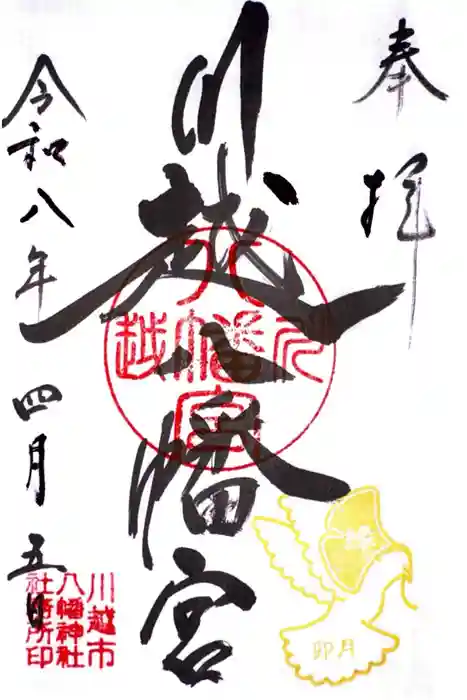 奉拝
川越八幡宮
令和八年四月五日
川越八幡宮
川越市
八幡神社
社務所印
卯月